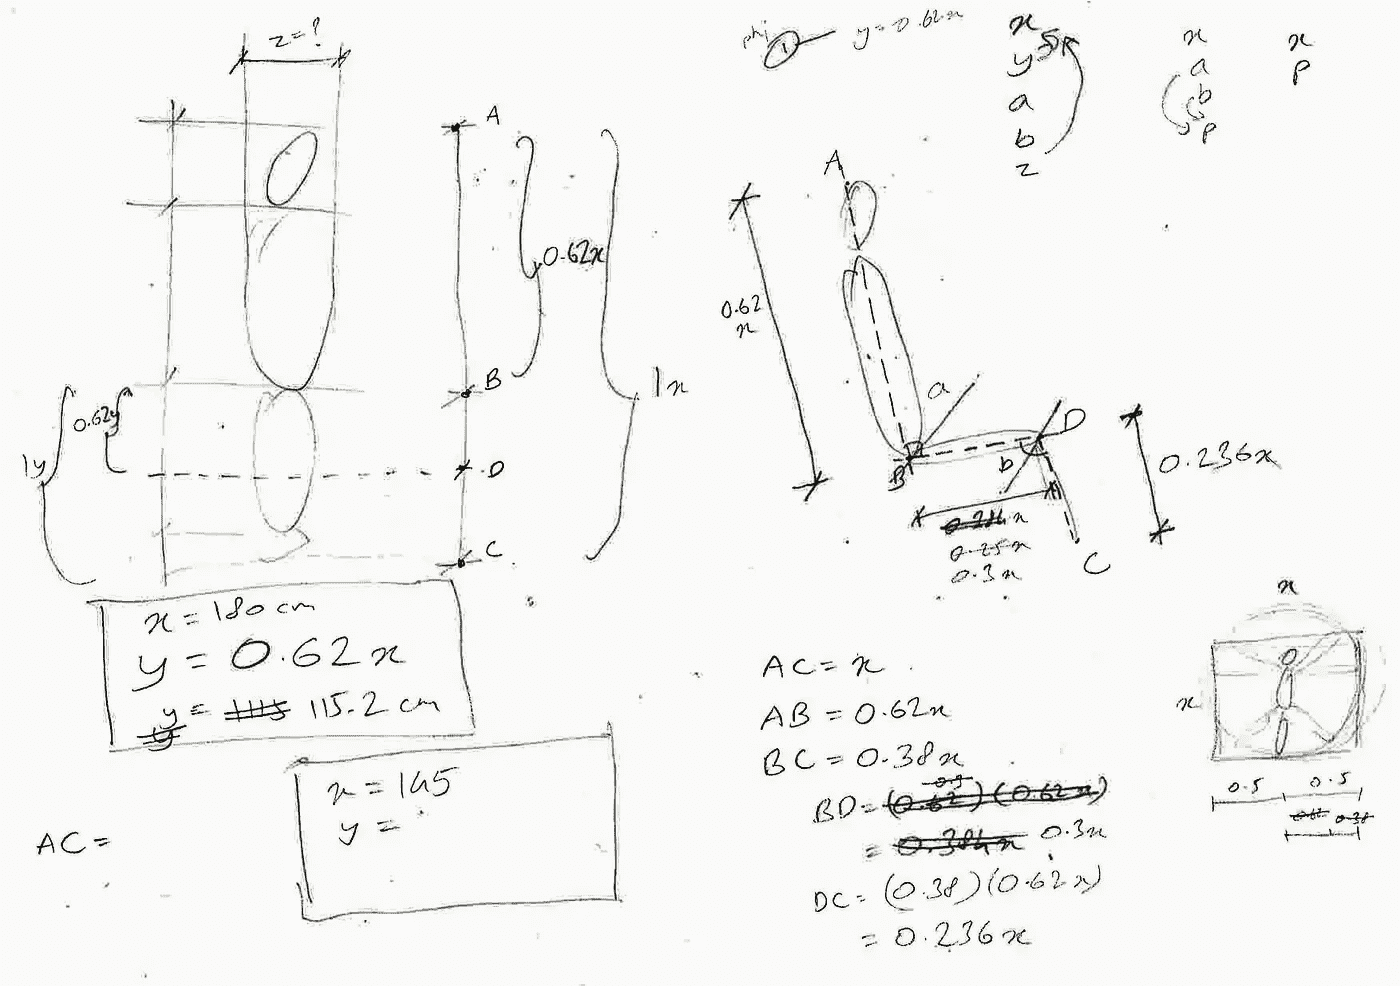 z=?
A
0.62x
B
1x
0.62y
1y
D
C
x = 180 cm
y = 0.62x
y = 115.2 cm
x = 165
y =
AC =
phi
1
y = 0.62x
x
y
a
b
z
x
a
b
p
x
p
A
0.62
x
a
B
b
D
0.236x
0.25x
0.3x
C
AC = x
AB = 0.62x
BC = 0.38x
0.5
BD = (0.62)(0.62x)
= 0.384x 0.3x
DC = (0.38)(0.62x)
= 0.236x
x
x
0.5 0.5
0.62 0.38